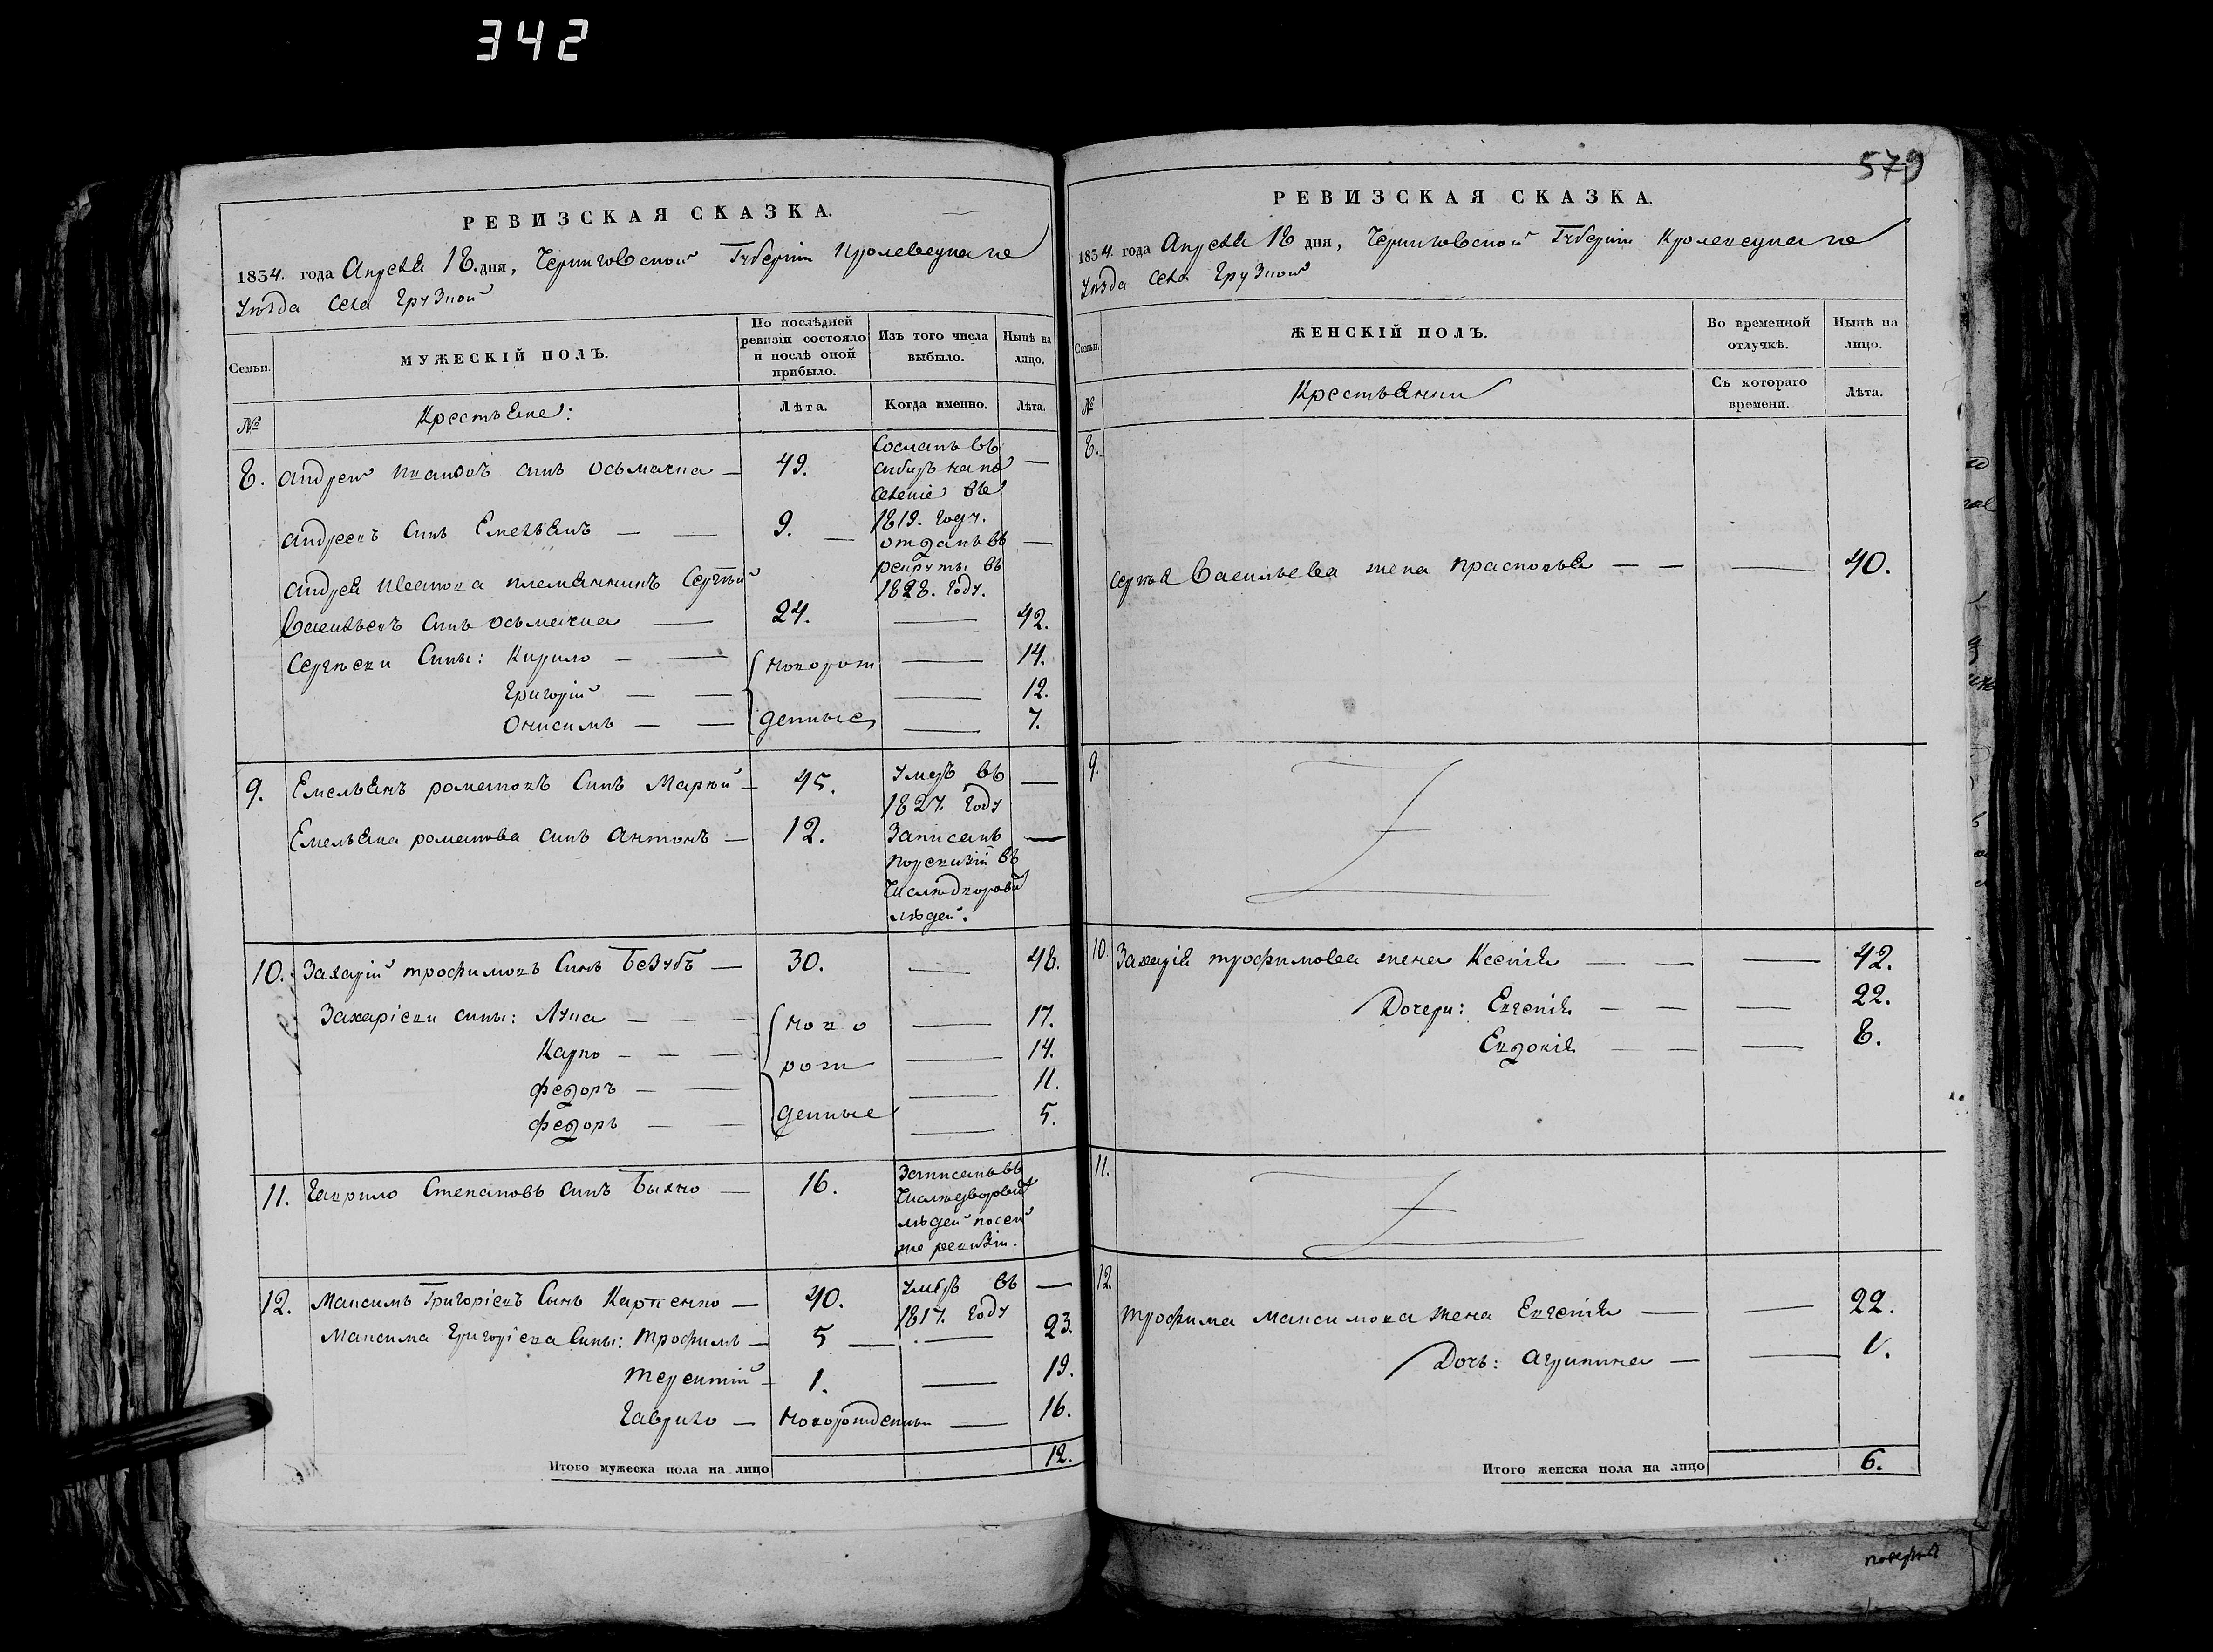 342
579
РЕВИЗСКАЯ СКАЗКА.
1834. года Апреля 18. дня, Черниговской Губерніи Кролевецкаго
Уѣзда Села Грузкой
Семьи.
МУЖЕСКІЙ ПОЛЪ.
По послѣдней ревизіи состояло и послѣ оной прибыло.
Изъ того числа выбыло.
Нынѣ на лицо.
№
Крестьяне:
Лѣта.
Когда именно.
Лѣта.
8. Андрей Ивановъ сынъ Осьмачка — 49. Сосланъ въ —
сибирь на по
селеніе въ
1819. году.
Андреевъ Сынъ Емельянъ — — 9. — отданъ въ —
рекруты въ
1828. году.
Андрея Иванова племянникъ Сергѣй
Васильевъ Сынъ Осьмачка — 24. — 42.
Сергѣеви Сыны: Кирило — — новорож — 14.
Григорій — — — 12.
Онисимъ — — денные — 7.
9. Емельянъ романовъ Сынъ Маркѣй — 45. Умеръ въ —
1827. Году
Емельяна романова сынъ Антонъ — 12. Записанъ —
поревизіи въ
числѣ дворовы
людей.
10. Захарій трофимовъ Сынъ Беzубъ — 30. — 48.
Захаріеви сыны: Лука — — — ново — 17.
Карпо — — — рож — 14.
федоръ — — — 11.
федоръ — — денные — 5.
11. Гаврило Степановъ сынъ Быхно — 16. Записанъ въ
числѣ дворовы
людей посей
же ревизіи.
12. Максимъ Григоріевъ Сынъ Карпенко — 40. Умеръ въ —
1817. Году
Максима Григоріева Сыны: Трофимъ — 5 — — 23.
Терентій — 1. — 19.
Гаврило — Новорожденны — 16.
Итого мужеска пола на лицо 12.
РЕВИЗСКАЯ СКАЗКА.
1834. года Апреля 18 дня, Черниговской Губерніи Кролевецкаго
Уѣзда Села Грузкой
Семьи.
ЖЕНСКІЙ ПОЛЪ.
Во временной отлучкѣ.
Нынѣ на лицо.
№
Крестьянки
Съ котораго времени.
Лѣта.
8.
Сергѣя Васильева жена Прасковья — — — 40.
9.
10. Захарія трофимова жена Ксенія — — — 42.
Дочери: Евгенія — — — 22.
Евдокія — — — 8.
11.
12.
Трофима Максимова жена Евгенія — — 22.
Дочь: Агрипина — — 1.
Итого женска пола на лицо 6.